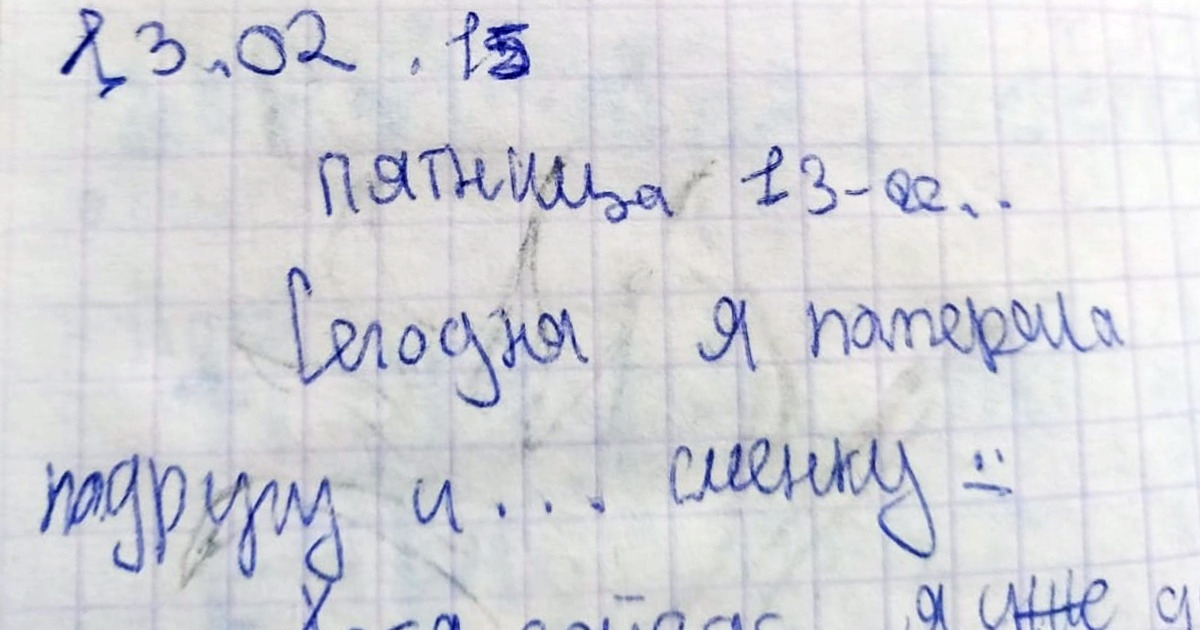 13.02.15
пятница 13-ое..
Сегодня я потеряла
подругу и... сменку :
я уже